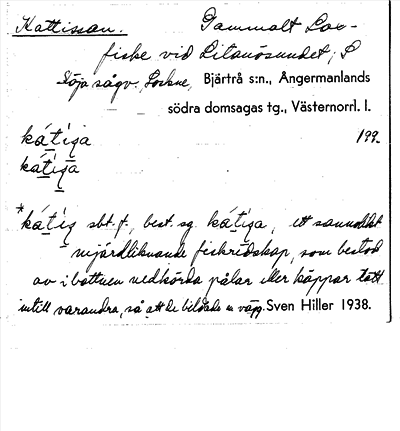 Kattissan. Gammalt Lax-
fiske vid Litanösundet, S
Köja sågv. Lockne, Bjärtrå s:n., Ångermanlands
södra domsagas tg., Västernorrl. l.
kátiga 199
kátiga
*kátig sbt. f., best. sg. kátiga, ett sannolikt
mjärdliknande fiskredskap, som bestod
av i bottnen nedkörda pålar eller käppar tätt
intill varandra, så att de bildade en vägg. Sven Hiller 1938.